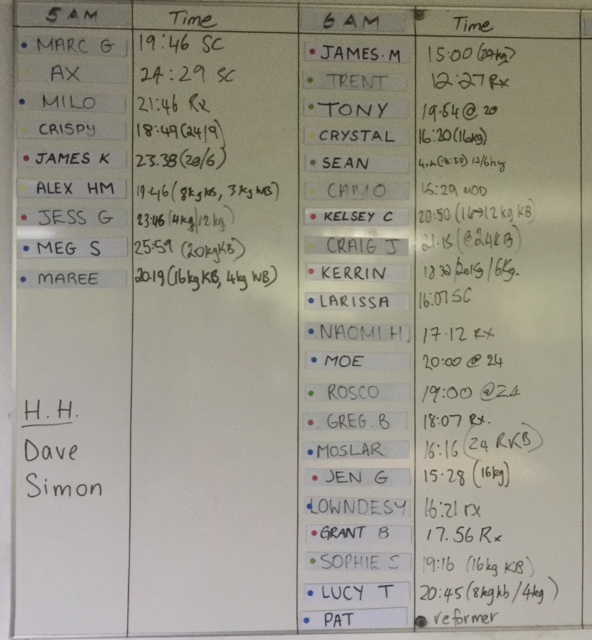 5 AM Time
MARC G 19:46 SC
AX 24:29 SC
MILO 21:46 Rx
CRISPY 18:49 (24/9)
JAMES K 23.38 (20/6)
ALEX HM 19:46 (8kg KB, 3kg WB)
JESS G 23:46 (4kg/12kg)
MEG S 25:59 (20kgKB)
MAREE 20:19 (16kg KB, 4kg WB)
H.H.
Dave
Simon
6 AM Time
JAMES.M 15:00 (24kg)
TRENT 12:27 Rx
TONY 19:54 @ 20
CRYSTAL 16:20 (16kg)
SEAN
CAMO 15:29 MOD
KELSEY C 20:50 (16→12 kg KB)
CRAIG J 21:15 (@24KB)
KERRIN 18:30 /20kg /6kg.
LARISSA 16:07 SC
NAOMI H 17.12 Rx
MOE 20:00 @ 24
ROSCO 19:00 @24
GREG.B 18:07 Rx.
MOSLAR 16:16 (24 RKB)
JEN G 15.28 (16kg)
LOWNDESY 16:21 rx
GRANT B 17.56 Rx
SOPHIE S 19:16 (16kg KB)
LUCY T 20:45 (8kgkb/4kg)
PAT reformer